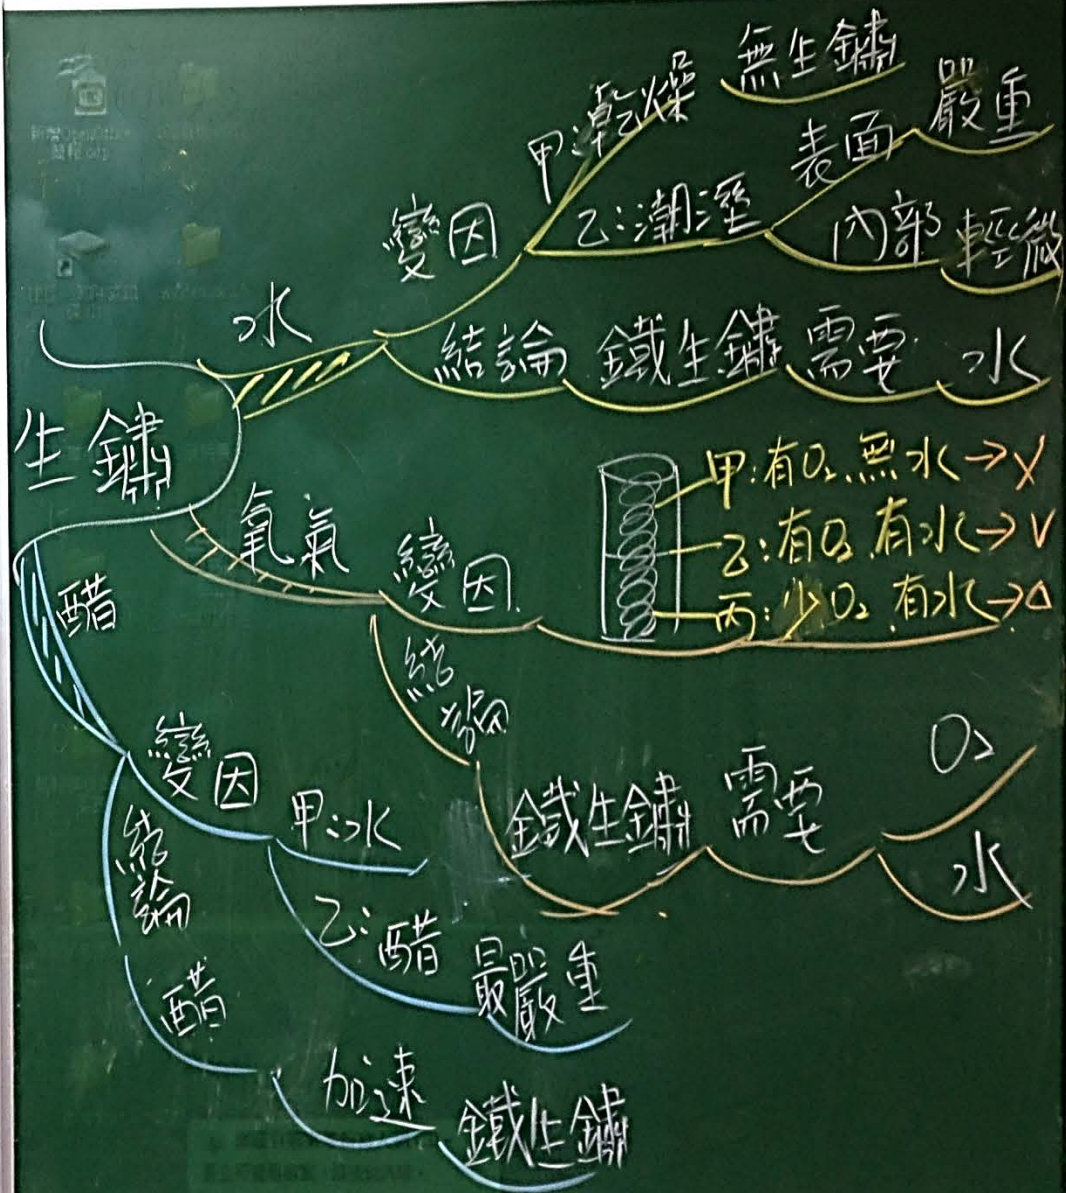 生鏽
水
變因
甲:乾燥
無生鏽
乙:潮溼
表面
嚴重
內部
輕微
結論 鐵生鏽 需要 水
氧氣
變因
甲:有O₂ 無水→X
乙:有O₂ 有水→V
丙:少O₂ 有水→△
結論
鐵生鏽 需要
O₂
水
醋
變因
甲:水
乙:醋
最嚴重
結論
醋
加速
鐵生鏽